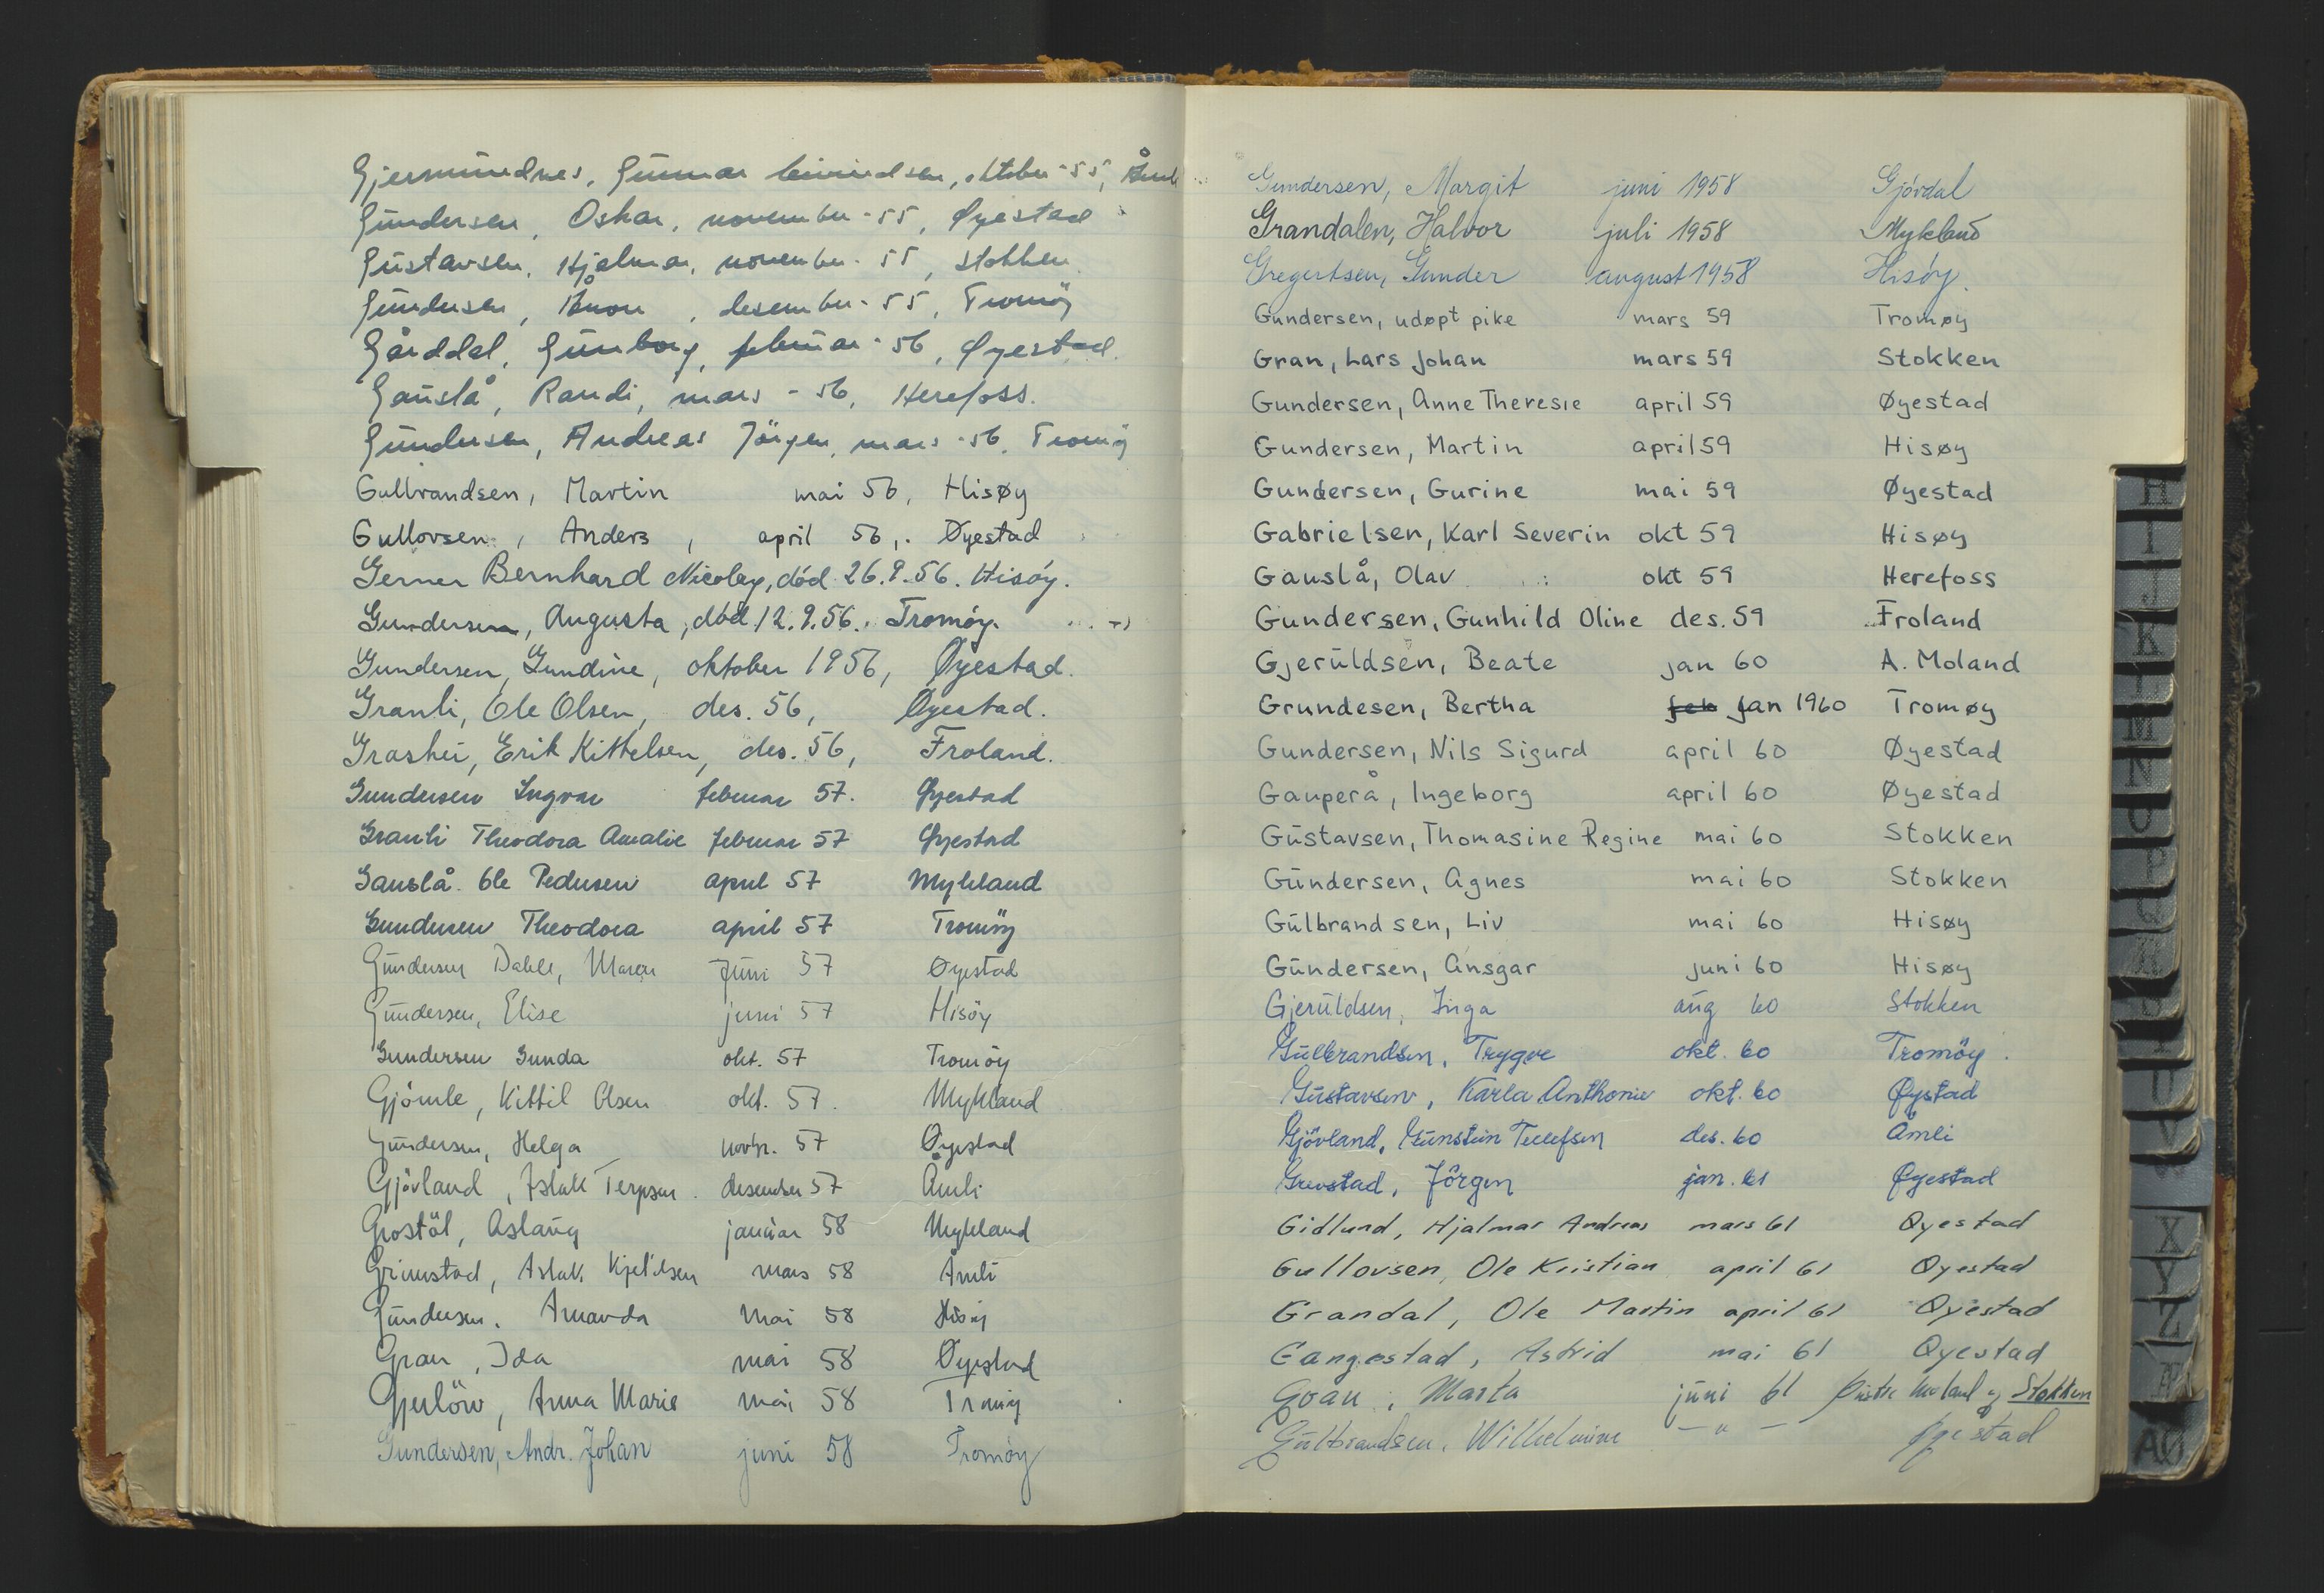 Gjermundnes, Gunnar Eivindsen, oktober - 55,
Gundersen, Oskar, november - 55, Øyestad
Gustavsen, Hjalmar, november - 55, Stokken
Gundersen, , desember - 55, Tromöy
Gårddal, Gunborg, februar - 56, Øyestad.
Gauslå, Randi, mars - 56, Herefoss.
Gundersen, Andreas Jörgen, mars - 56, Tromöy
Gulbrandsen, Martin mai 56, Hisøy
Gullovsen, Anders, april 56, Øyestad
Gerner Bernhard Nicolay, död 26.9.56. Hisöy.
Gundersen, Augusta, död 12.9.56. Tromöy.
Gundersen, Gundine, oktober 1956, Øyestad.
Granli, Ole Olsen, des. 56, Øyestad.
Grashei, Erik Kittelsen, des. 56, Froland.
Gundersen Ingvar februar 57. Øyestad
Granli Theodora Amalie februar 57 Øyestad
Gauslå Ole Pedersen april 57 Mykland
Gundersen Theodora april 57 Tromöy
Gundersen Dahle, Maren Juni 57 Øyestad
Gundersen, Elise juni 57 Hisöy
Gundersen Gunda okt. 57 Tromöy
Gjömle, Kittil Olsen okt. 57. Mykland
Gundersen, Helga novbr. 57 Øyestad
Gjövland, Aslak Terjesen. desember 57 Åmli
Grostöl, Aslaug januar 58 Mykland
Grimstad, Aslak Kjetilsen mars 58 Åmli
Gundersen, Amanda mai 58 Hisöy
Gran, Ida mai 58 Øyestad
Gjerlöw, Anna Marie mai 58 Tromöy
Gundersen, Andr. Johan juni 58 Tromöy
Gundersen, Margit juni 1958 Gjövdal
Grandalen, Halvor juli 1958 Mykland
Gregertsen, Gunder august 1958 Hisöy.
Gundersen, udøpt pike mars 59 Tromøy
Gran, Lars Johan mars 59 Stokken
Gundersen, Anne Theresie april 59 Øyestad
Gundersen, Martin april 59 Hisøy
Gundersen, Gurine mai 59 Øyestad
Gabrielsen, Karl Severin okt 59 Hisøy
Gauslå, Olav okt 59 Herefoss
Gundersen, Gunhild Oline des. 59 Froland
Gjerūldsen, Beate jan 60 A. Moland
Grundesen, Bertha feb jan 1960 Tromøy
Gundersen, Nils Sigurd april 60 Øyestad
Gauperå, Ingeborg april 60 Øyestad
Gūstavsen, Thomasine Regine mai 60 Stokken
Gūndersen, Agnes mai 60 Stokken
Gūlbrandsen, Liv mai 60 Hisøy
Gūndersen, Ansgar juni 60 Hisøy
Gjerūldsen, Inga aūg 60 Stokken
Gūlbrandsen, Trygve okt. 60 Tromöy.
Gūstavsen, Karla Anthonie okt. 60 Øystad
Gjövland, Gūnstein Tellefsen des. 60 Åmli
Grevstad, Jörgen jan. 61 Øyestad
Gidlund, Hjalmar Andreas mars 61 Øyestad
Gullovsen, Ole Kristian april 61 Øyestad
Grandal, Ole Martin april 61 Øyestad
Gangestad, Astrid mai 61 Øyestad
Goau, Marta jūni 61 Østre Moland og Stokken
Gūlbrandsen, Wilhelmine — " — Øyestad
H
I
J
K
L
M
N
O
P
Q
R
U
V
X
Y
Z
Æ
AØ